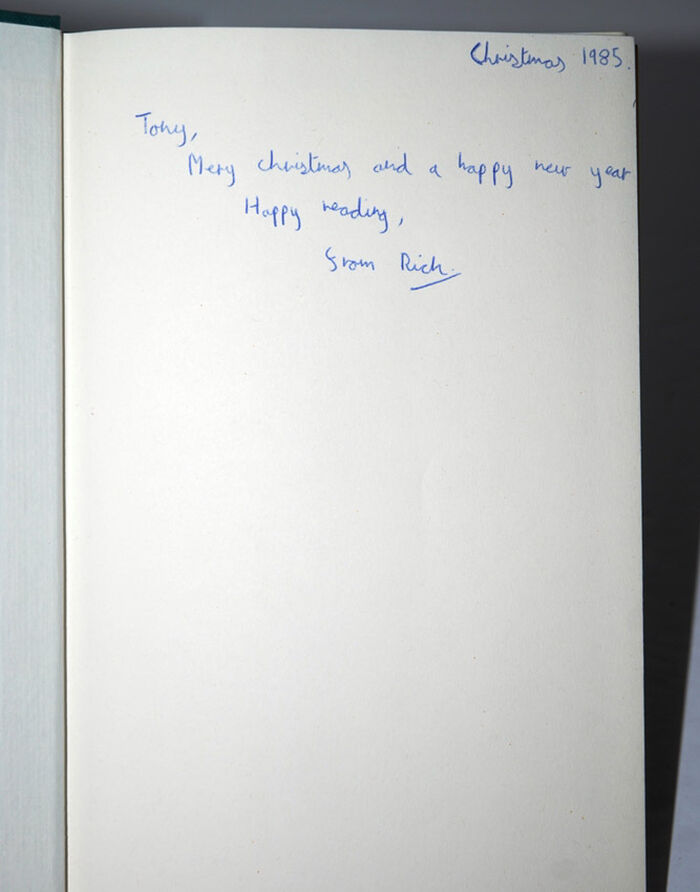 Christmas 1985.
Tony,
Mery christmas and a happy new year
Happy reading,
from Rich.